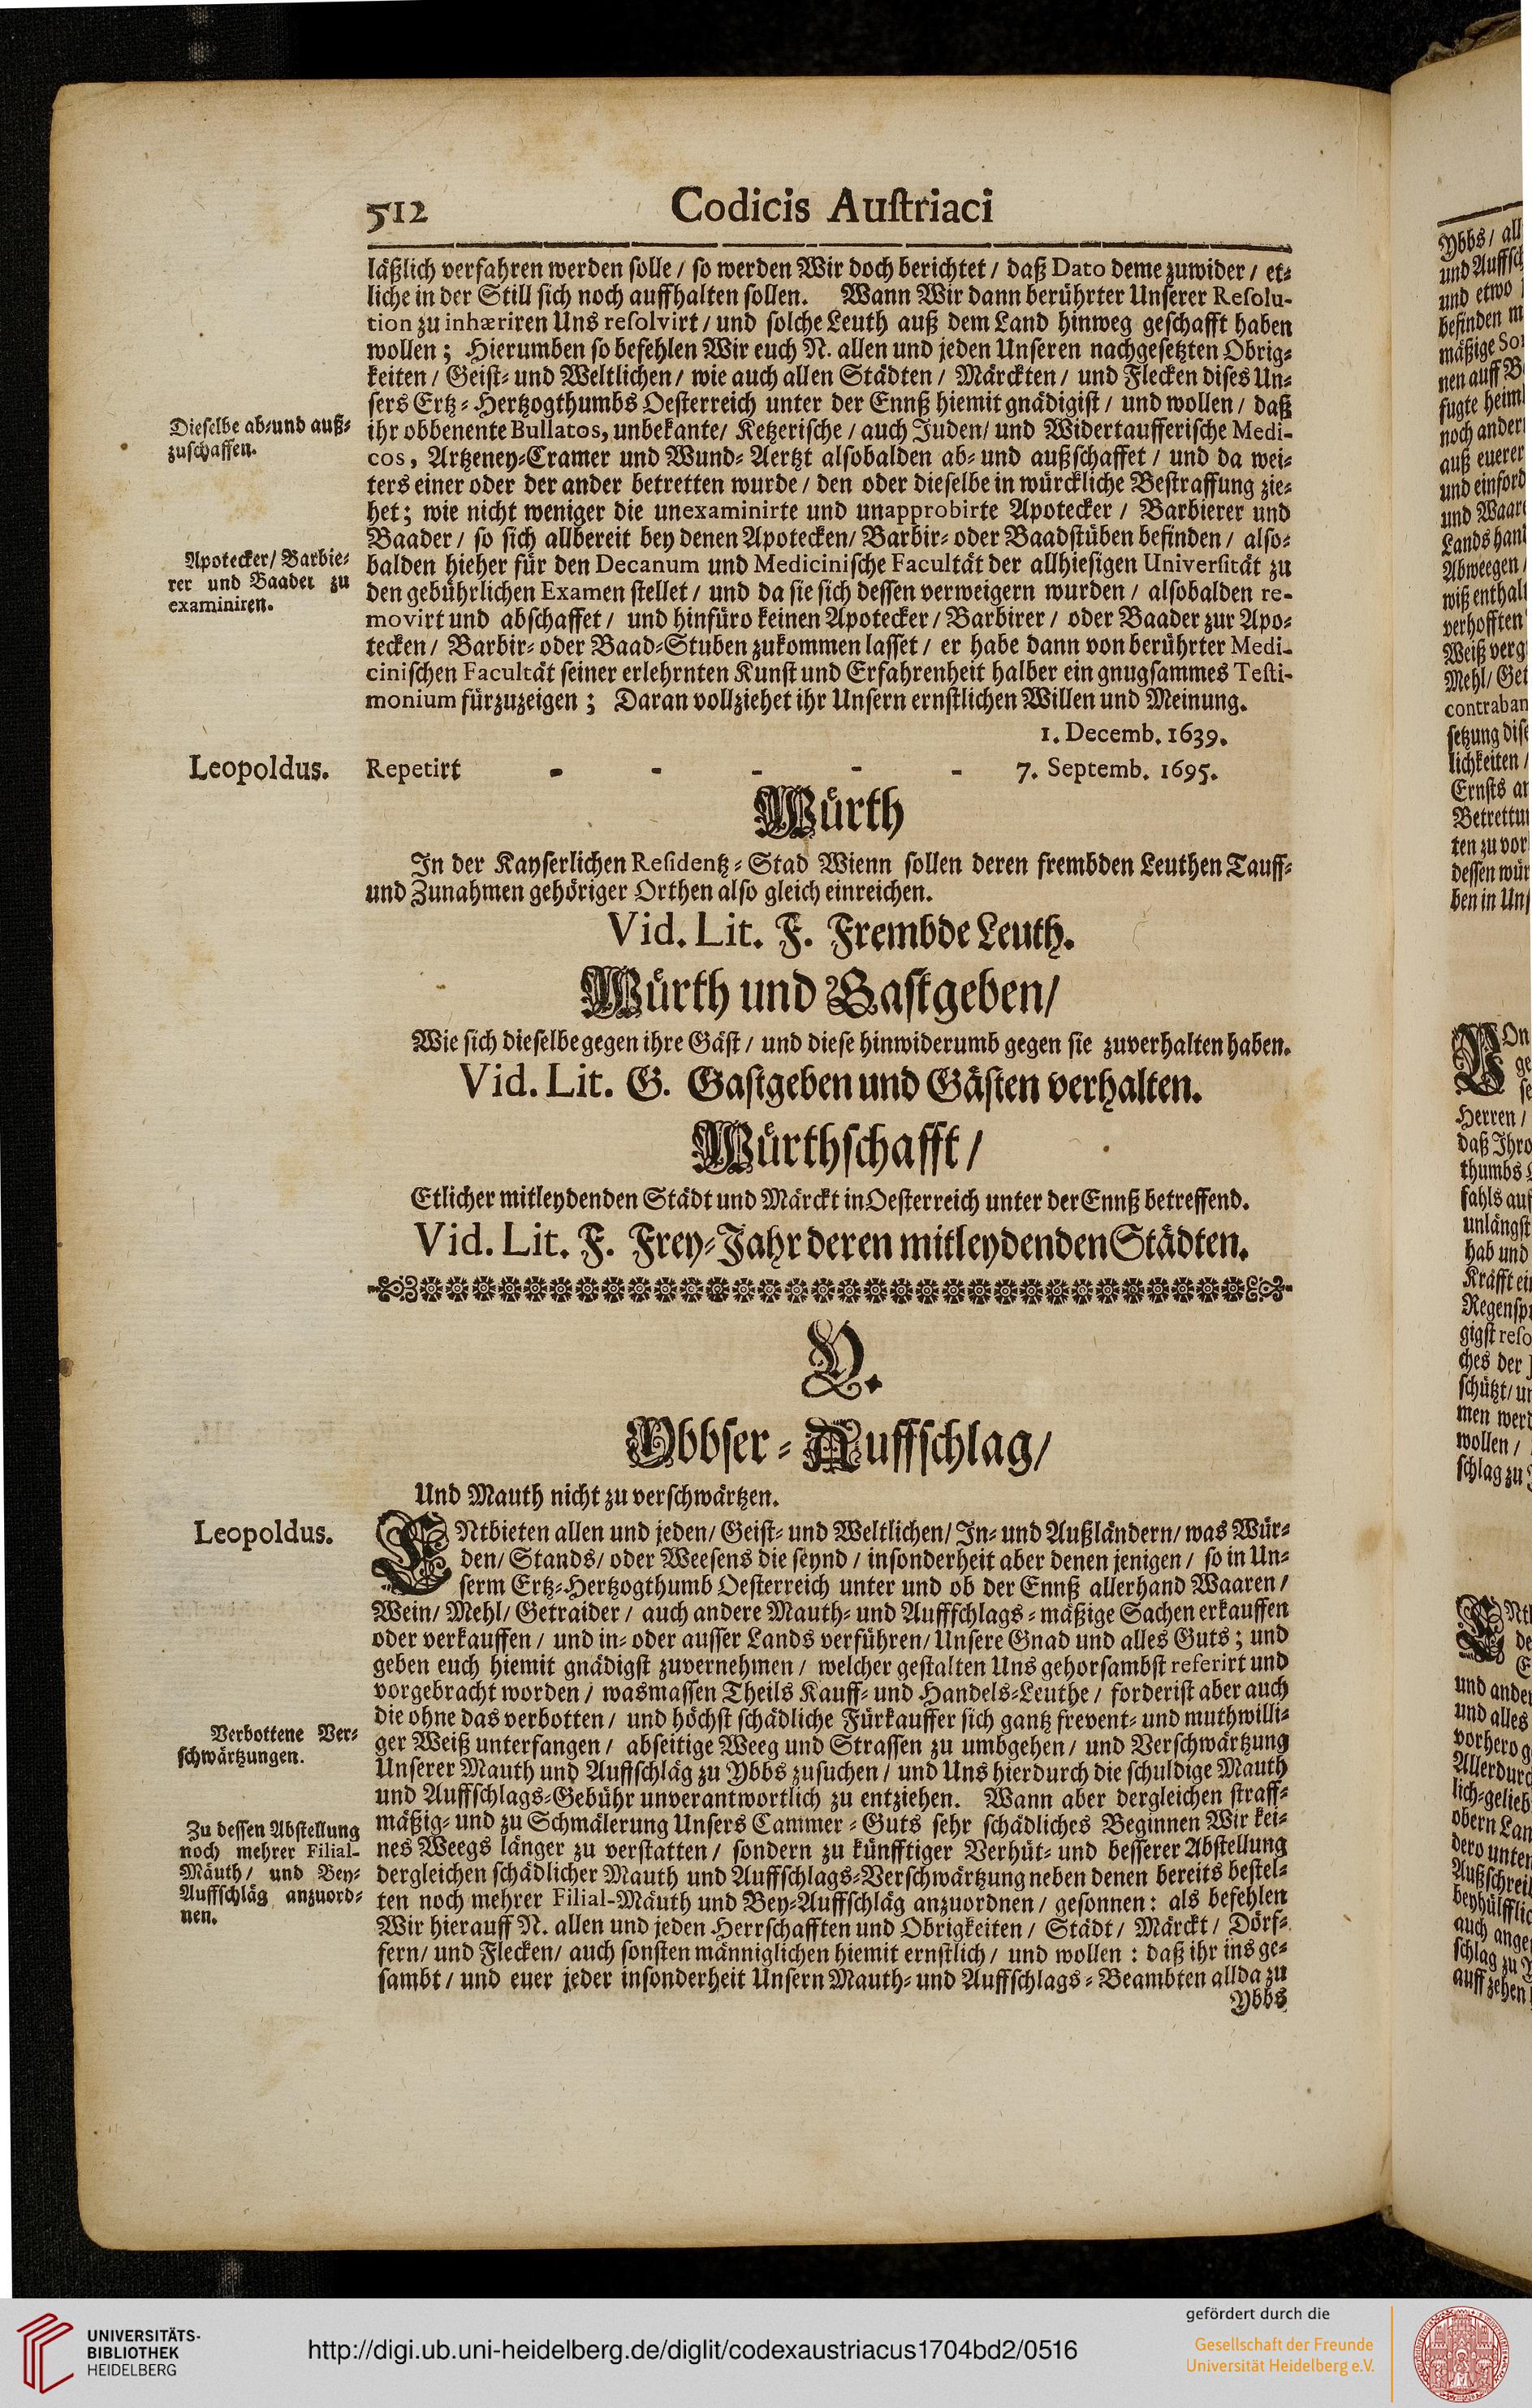 512 Codicis Auſtriaci
läßlich verfahren werden ſolle / ſo werden Wir doch berichtet / daß Dato deme zuwider / et⸗
liche in der Still ſich noch auffhalten ſollen. Wann Wir dann berührter Unſerer Reſolu-
tion zu inhæriren Uns reſolvirt / und ſolche Leuth auß dem Land hinweg geſchafft haben
wollen ; Hierumben ſo befehlen Wir euch N. allen und jeden Unſeren nachgeſetzten Obrig⸗
keiten / Geiſt⸗ und Weltlichen / wie auch allen Städten / Märckten / und Flecken diſes Un⸗
ſers Ertz⸗Hertzogthumbs Oeſterreich unter der Ennß hiemit gnädigiſt / und wollen / daß
Dieſelbe ab⸗und auß⸗
zuſchaffen.
ihr obbenente Bullatos, unbekante / Ketzeriſche / auch Juden / und Widertaufferiſche Medi-
cos, Artzeney⸗Cramer und Wund⸗Aertzt alſobalden ab⸗ und außſchaffet / und da wei⸗
ters einer oder der ander betretten wurde / den oder dieſelbe in würckliche Beſtraffung zie⸗
het ; wie nicht weniger die unexaminirte und unapprobirte Apotecker / Barbierer und
Baader / ſo ſich allbereit bey denen Apotecken / Barbir⸗ oder Baadſtüben befinden / alſo⸗
Apotecker / Barbie⸗
rer und Baader zu
examiniren.
balden hieher für den Decanum und Mediciniſche Facultät der allhieſigen Univerſität zu
den gebührlichen Examen ſtellet / und da ſie ſich deſſen verweigern wurden / alſobalden re-
movirt und abſchaffet / und hinfüro keinen Apotecker / Barbirer / oder Baader zur Apo⸗
tecken / Barbir⸗ oder Baad⸗Stuben zukommen laſſet / er habe dann von berührter Medi-
ciniſchen Facultät ſeiner erlehrnten Kunſt und Erfahrenheit halber ein gnugſammes Teſti-
monium fürzuzeigen ; Daran vollziehet ihr Unſern ernſtlichen Willen und Meinung.
1. Decemb. 1639.
Leopoldus. Repetirt - - - - - 7. Septemb. 1695.
Würth
In der Kayſerlichen Reſidentz⸗Stad Wienn ſollen deren frembden Leuthen Tauff⸗
und Zunahmen gehöriger Orthen alſo gleich einreichen.
Vid. Lit. F. Frembde Leuth.
Würth und Gaſtgeben /
Wie ſich dieſelbe gegen ihre Gäſt / und dieſe hinwiderumb gegen ſie zuverhalten haben.
Vid. Lit. G. Gaſtgeben und Gäſten verhalten.
Würthſchafft /
Etlicher mitleydenden Städt und Märckt in Oeſterreich unter der Ennß betreffend.
Vid. Lit. F. Frey⸗Jahr deren mitleydenden Städten.
Y.
Ybbſer⸗Auffſchlag /
Und Mauth nicht zu verſchwärtzen.
Leopoldus.
ENtbieten allen und jeden / Geiſt⸗ und Weltlichen / In⸗ und Außländern / was Wür⸗
den / Stands / oder Weeſens die ſeynd / inſonderheit aber denen jenigen / ſo in Un⸗
ſerm Ertz⸗Hertzogthumb Oeſterreich unter und ob der Ennß allerhand Waaren /
Wein / Mehl / Getraider / auch andere Mauth⸗ und Auffſchlags⸗mäßige Sachen erkauffen
oder verkauffen / und in⸗ oder auſſer Lands verführen / Unſere Gnad und alles Guts ; und
geben euch hiemit gnädigſt zuvernehmen / welcher geſtalten Uns gehorſambſt referirt und
vorgebracht worden / wasmaſſen Theils Kauff⸗ und Handels⸗Leuthe / forderiſt aber auch
die ohne das verbotten / und höchſt ſchädliche Fürkauffer ſich gantz frevent⸗ und muthwilli⸗
Verbottene Ver⸗
ſchwärtzungen.
ger Weiß unterfangen / abſeitige Weeg und Straſſen zu umbgehen / und Verſchwärtzung
Unſerer Mauth und Auffſchläg zu Ybbs zuſuchen / und Uns hierdurch die ſchuldige Mauth
und Auffſchlags⸗Gebühr unverantwortlich zu entziehen. Wann aber dergleichen ſtraff⸗
mäßig⸗ und zu Schmälerung Unſers Cammer⸗Guts ſehr ſchädliches Beginnen Wir kei⸗
Zu deſſen Abſtellung
noch mehrer Filial-
Mäuth / und Bey⸗
Auffſchläg anzuord⸗
nen.
nes Weegs länger zu verſtatten / ſondern zu künfftiger Verhüt⸗ und beſſerer Abſtellung
dergleichen ſchädlicher Mauth und Auffſchlags⸗Verſchwärtzung neben denen bereits beſtel⸗
ten noch mehrer Filial-Mäuth und Bey⸗Auffſchläg anzuordnen / geſonnen : als befehlen
Wir hierauff N. allen und jeden Herrſchafften und Obrigkeiten / Städt / Märckt / Dörf⸗
fern / und Flecken / auch ſonſten männiglichen hiemit ernſtlich / und wollen : daß ihr ins ge⸗
ſambt / und euer jeder inſonderheit Unſern Mauth⸗ und Auffſchlags⸗Beambten allda zu
Ybbs
UNIVERSITÄTS-
BIBLIOTHEK
HEIDELBERG
http://digi.ub.uni-heidelberg.de/diglit/codexaustriacus1704bd2/0516
gefördert durch die
Gesellschaft der Freunde
Universität Heidelberg e.V.